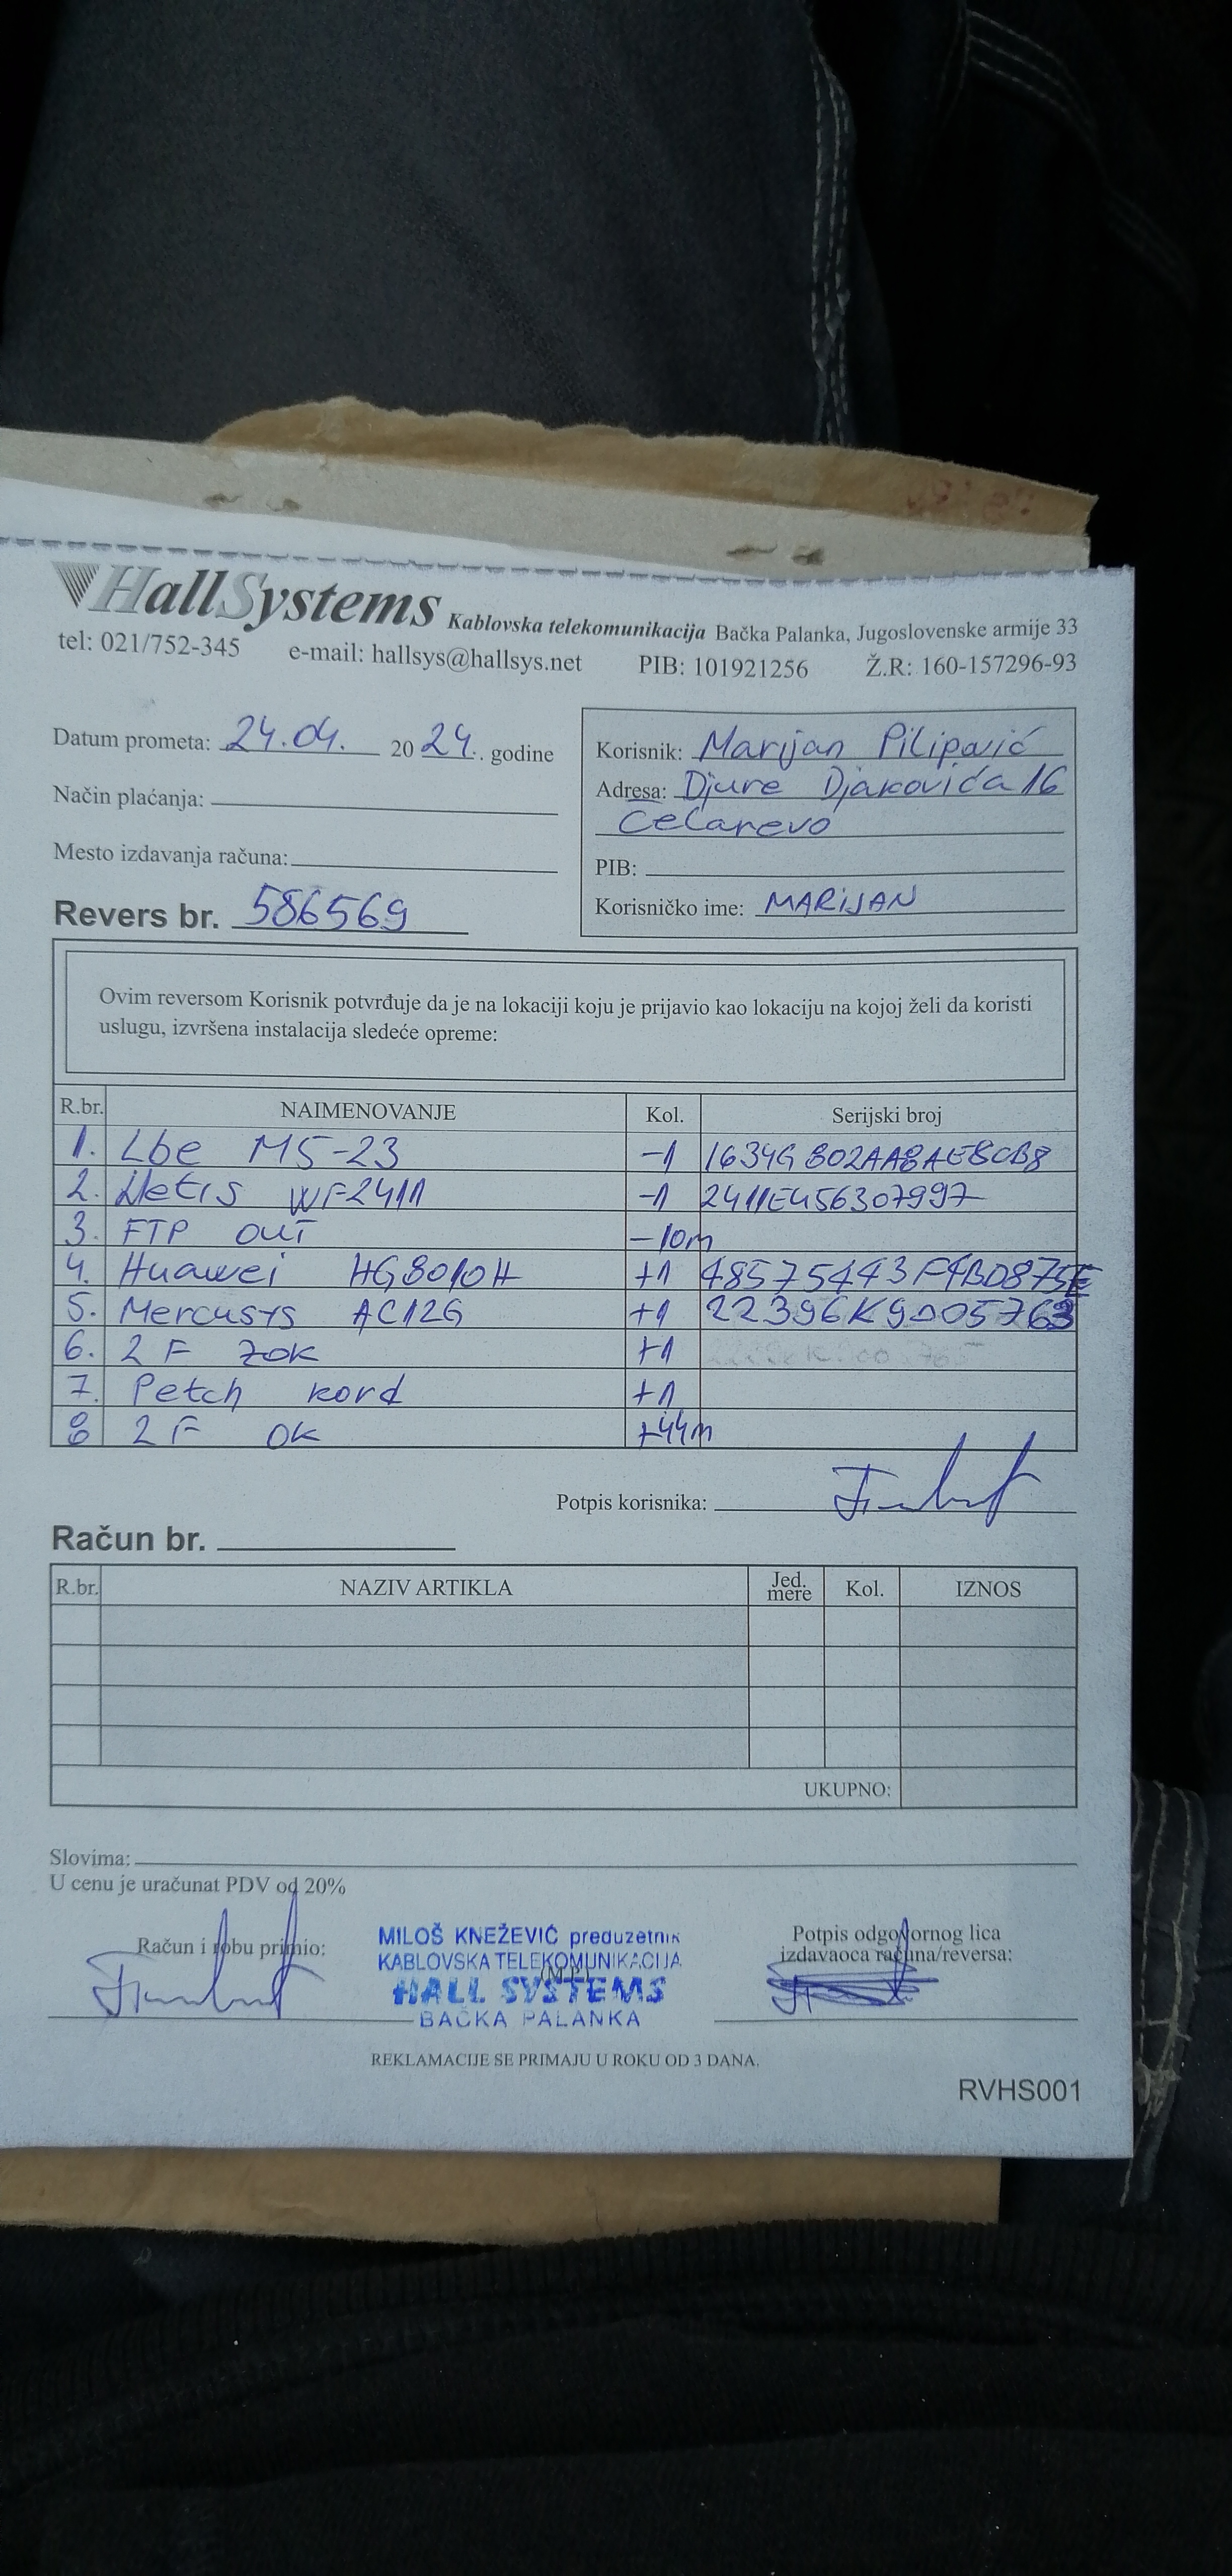 HallSystems Kablovska telekomunikacija Bačka Palanka, Jugoslovenske armije 33
tel: 021/752-345 e-mail: hallsys@hallsys.net PIB: 101921256 Ž.R: 160-157296-93
Datum prometa: 24.04. 2024. godine
Način plaćanja:
Mesto izdavanja računa:
Revers br. 586569
Korisnik: Marijan Pilipović
Adresa: Djure Djakovića 16
Čelarevo
PIB:
Korisničko ime: MARIJAN
Ovim reversom Korisnik potvrđuje da je na lokaciji koju je prijavio kao lokaciju na kojoj želi da koristi
uslugu, izvršena instalacija sledeće opreme:
R.br. NAIMENOVANJE Kol. Serijski broj
1. Lbe M5-23 -1 1634G802AA8AE8CB8
2. Netis WF2411 -1 2411E456307997
3. FTP OUT -10m
4. Huawei HG8010H +1 48575443F4BD875E
5. Mercusys AC12G +1 22396K9005763
6. 2 F ZOK +1
7. Petch kord +1
8 2 F OK +44m
Potpis korisnika:
Račun br.
R.br. NAZIV ARTIKLA Jed. mere Kol. IZNOS
UKUPNO:
Slovima:
U cenu je uračunat PDV od 20%
Račun i robu primio:
MILOŠ KNEŽEVIĆ preduzetnik
KABLOVSKA TELEKOMUNIKACIJA
(M.P.)
HALL SYSTEMS
BAČKA PALANKA
Potpis odgovornog lica
izdavaoca računa/reversa:
REKLAMACIJE SE PRIMAJU U ROKU OD 3 DANA.
RVHS001